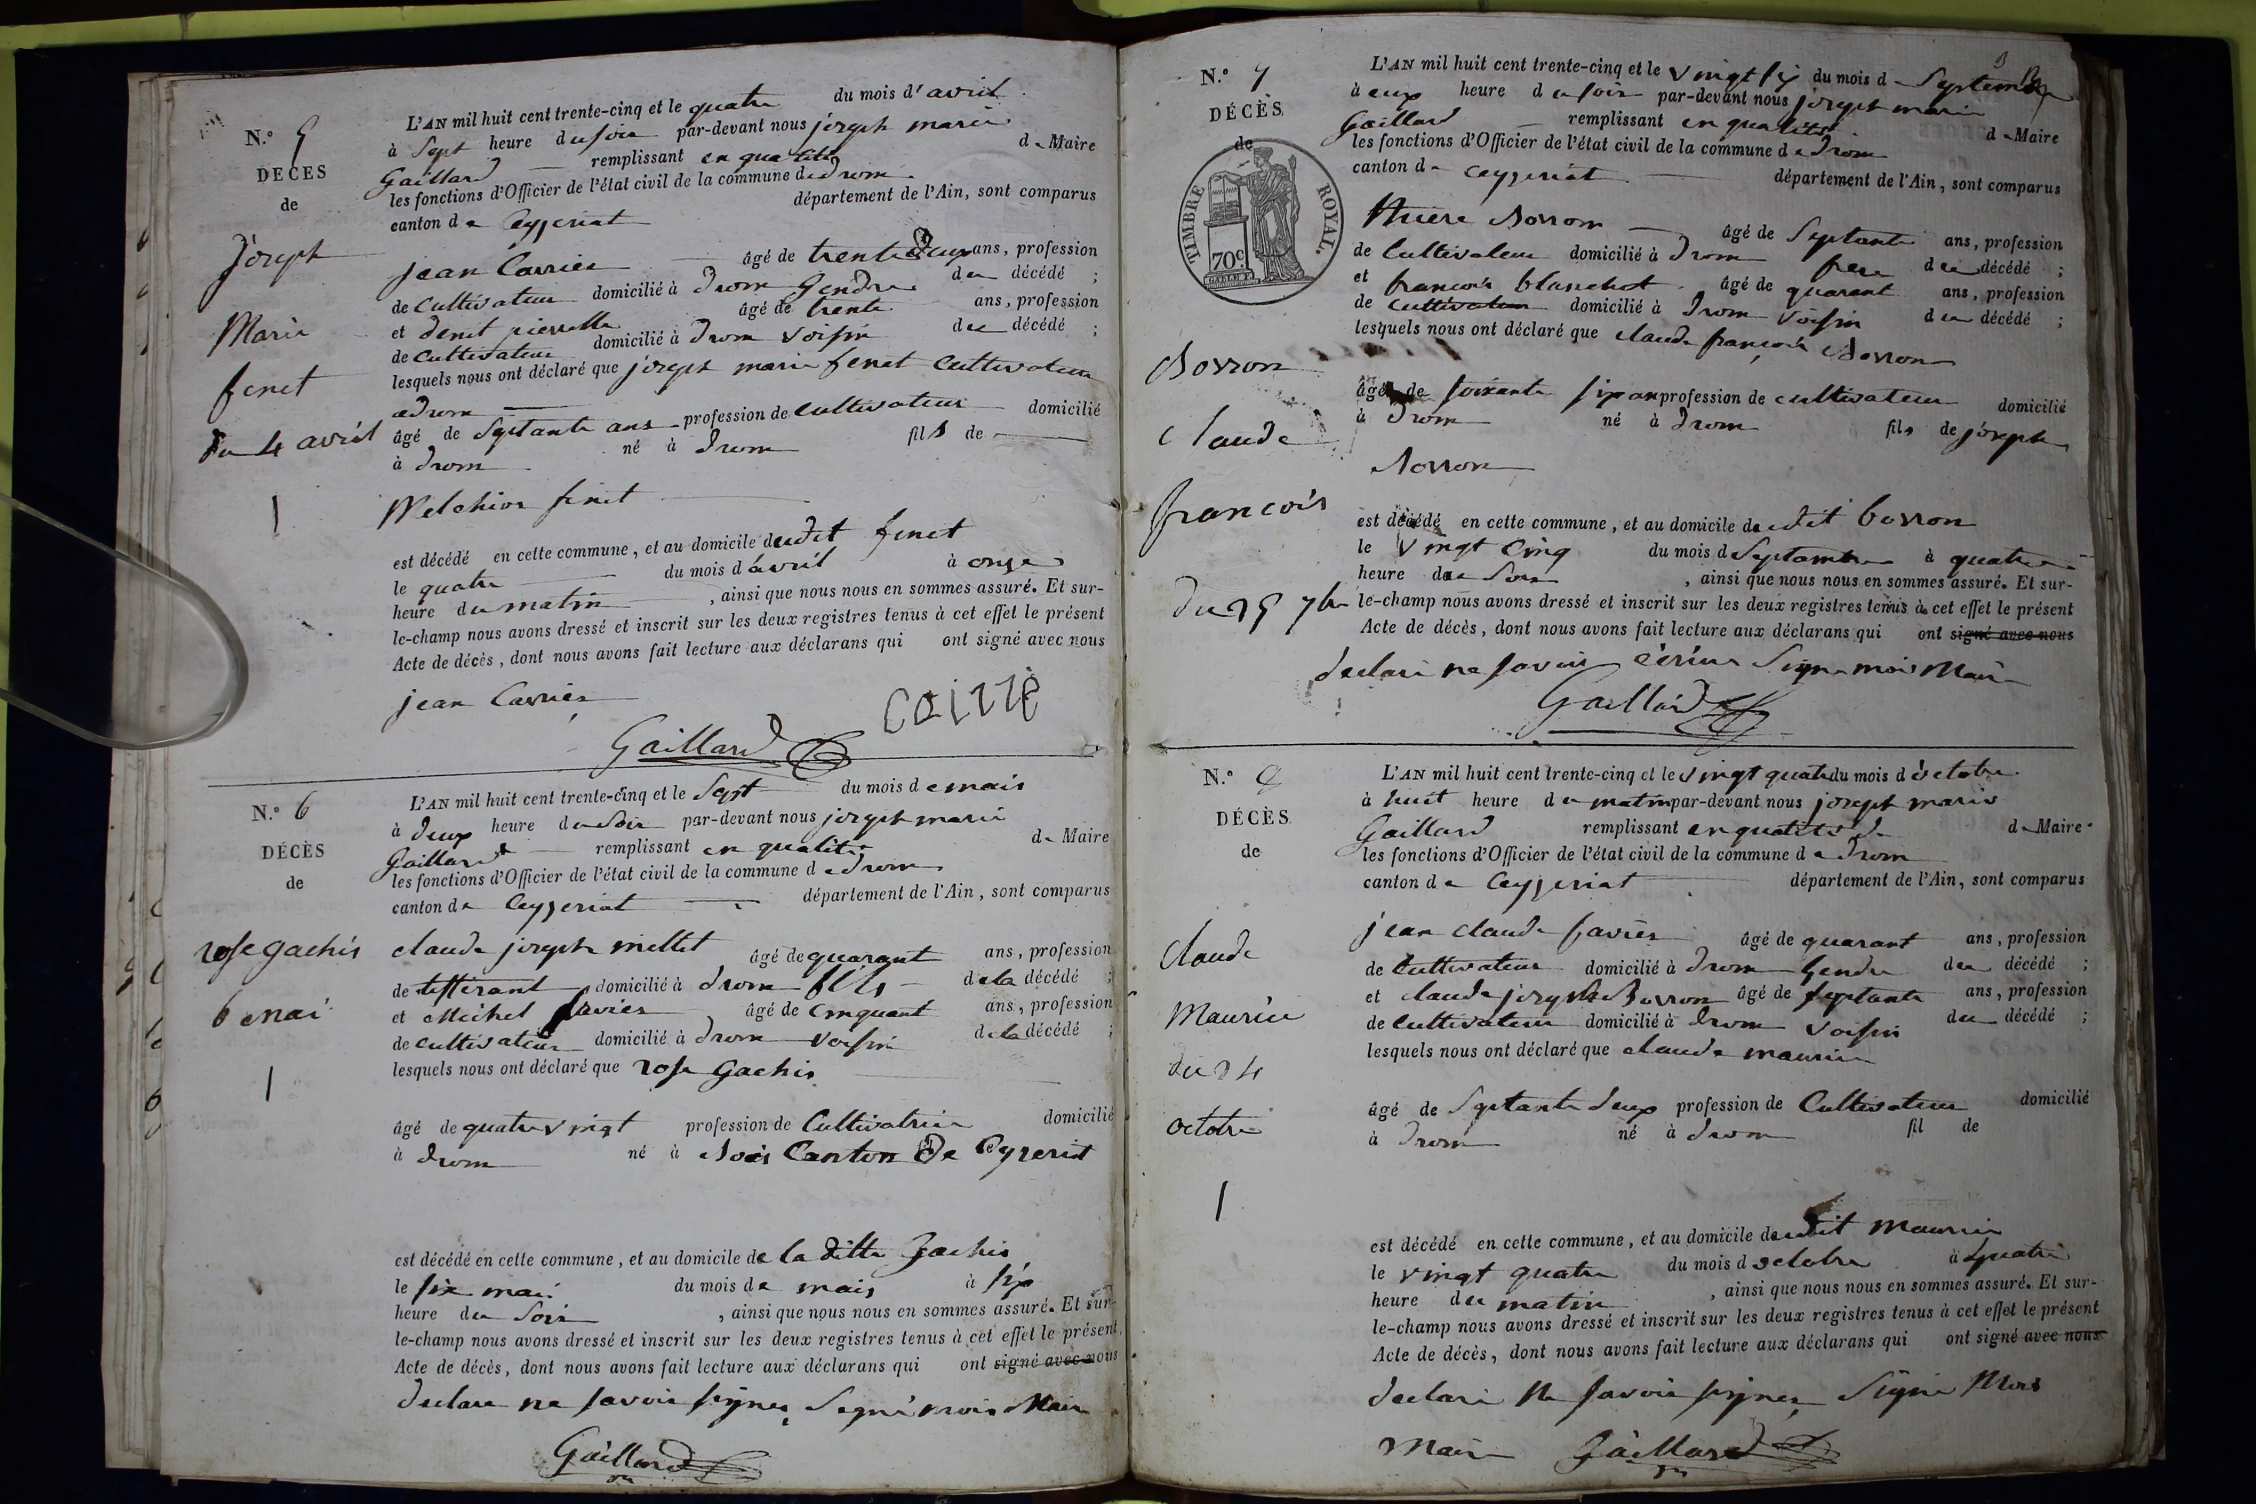 N.° 5
DÉCÈS
de
joseph
Marie
fenet
du 4 avril
L'AN mil huit cent trente-cinq et le quatre du mois d'avril
à Sept heure du soir par-devant nous joseph marie
Gaillard remplissant en qualité de Maire
les fonctions d'Officier de l'état civil de la commune de drom
canton de Ceyzeriat département de l'Ain, sont comparus
jean Carrier âgé de trente deux ans, profession
de Cultivateur domicilié à drom Gendre du décédé ;
et denit pierrette âgé de trente ans, profession
de Cultivateur domicilié à drom voisin du décédé ;
lesquels nous ont déclaré que joseph marie fenet Cultivateur
a drom
âgé de Septante ans profession de Cultivateur domicilié
à drom né à drom fils de
Melchior fenet
est décédé en cette commune, et au domicile dudit fenet
le quatre du mois d avril à onze
heure du matin , ainsi que nous nous en sommes assuré. Et sur-
le-champ nous avons dressé et inscrit sur les deux registres tenus à cet effet le présent
Acte de décès, dont nous avons fait lecture aux déclarans qui ont signé avec nous
jean Carrier
Gaillard
N.° 6
DÉCÈS
de
rose gachis
6 mai
L'AN mil huit cent trente-cinq et le Sept du mois de mais
à deux heure du Soir par-devant nous joseph marie
Gaillard remplissant en qualité de Maire
les fonctions d'Officier de l'état civil de la commune de drom
canton de Ceyzeriat département de l'Ain, sont comparus
claude joseph millet âgé de quarant ans, profession
de tisserant domicilié à drom fils de la décédé ;
et Michel favier âgé de Cinquant ans, profession
de cultivateur domicilié à drom voisin de la décédé ;
lesquels nous ont déclaré que rose Gachis
âgé de quatre vingt profession de Cultivatrice domicilié
à drom né à Canton De Ceyzeriat
est décédé en cette commune, et au domicile de la ditte Gachis
le six mai du mois de mais à six
heure du Soir , ainsi que nous nous en sommes assuré. Et sur-
le-champ nous avons dressé et inscrit sur les deux registres tenus à cet effet le présent
Acte de décès, dont nous avons fait lecture aux déclarans qui ont signé avec nous
declare ne savoir signer Signé mois Maire
Gaillard
N.° 7
DÉCÈS
de
TIMBRE ROYAL.
70c
Borron
Claude
francois
du 25 7bre
L'AN mil huit cent trente-cinq et le vingt six du mois d Septembre
à heure du soir par-devant nous joseph marie
Gaillard remplissant en qualité de Maire
les fonctions d'Officier de l'état civil de la commune de drom
canton de Ceyzeriat département de l'Ain, sont comparus
Borron âgé de Septante ans, profession
de Cultivateur domicilié à drom frere du décédé ;
et francois blanchot âgé de quarant ans, profession
de cultivateur domicilié à drom voisin du décédé ;
lesquels nous ont déclaré que claude françois Borron
âgé de soixante six ans profession de cultivateur domicilié
à drom né à drom fils de joseph
Borron
est décédé en cette commune, et au domicile dudit borron
le vingt Cinq du mois d Septambre à quatre
heure du Soir , ainsi que nous nous en sommes assuré. Et sur-
le-champ nous avons dressé et inscrit sur les deux registres tenus à cet effet le présent
Acte de décès, dont nous avons fait lecture aux déclarans qui ont signé avec nous
declaré ne savoir écrire Signe mois Maire
Gaillard
N.°
DÉCÈS
de
Claude
Maurice
du 24
octobre
L'AN mil huit cent trente-cinq et le vingt quatre du mois d'octobre
à huit heure du matin par-devant nous joseph marie
Gaillard remplissant en qualité de Maire
les fonctions d'Officier de l'état civil de la commune de drom
canton de Ceyzeriat département de l'Ain, sont comparus
jean claude favier âgé de quarant ans, profession
de Cultivateur domicilié à drom Gendre du décédé ;
et claude joseph Borron âgé de septante ans, profession
de Cultivateur domicilié à drom voisin du décédé ;
lesquels nous ont déclaré que claude maurice
âgé de Septante deux profession de Cultivateur domicilié
à drom né à drom fil de
est décédé en cette commune, et au domicile dudit maurice
le vingt quatre du mois d octobre à quatre
heure du matin , ainsi que nous nous en sommes assuré. Et sur-
le-champ nous avons dressé et inscrit sur les deux registres tenus à cet effet le présent
Acte de décès, dont nous avons fait lecture aux déclarans qui ont signé avec nous
declaré Ne savoir signer Signé Mois
Maire Gaillard